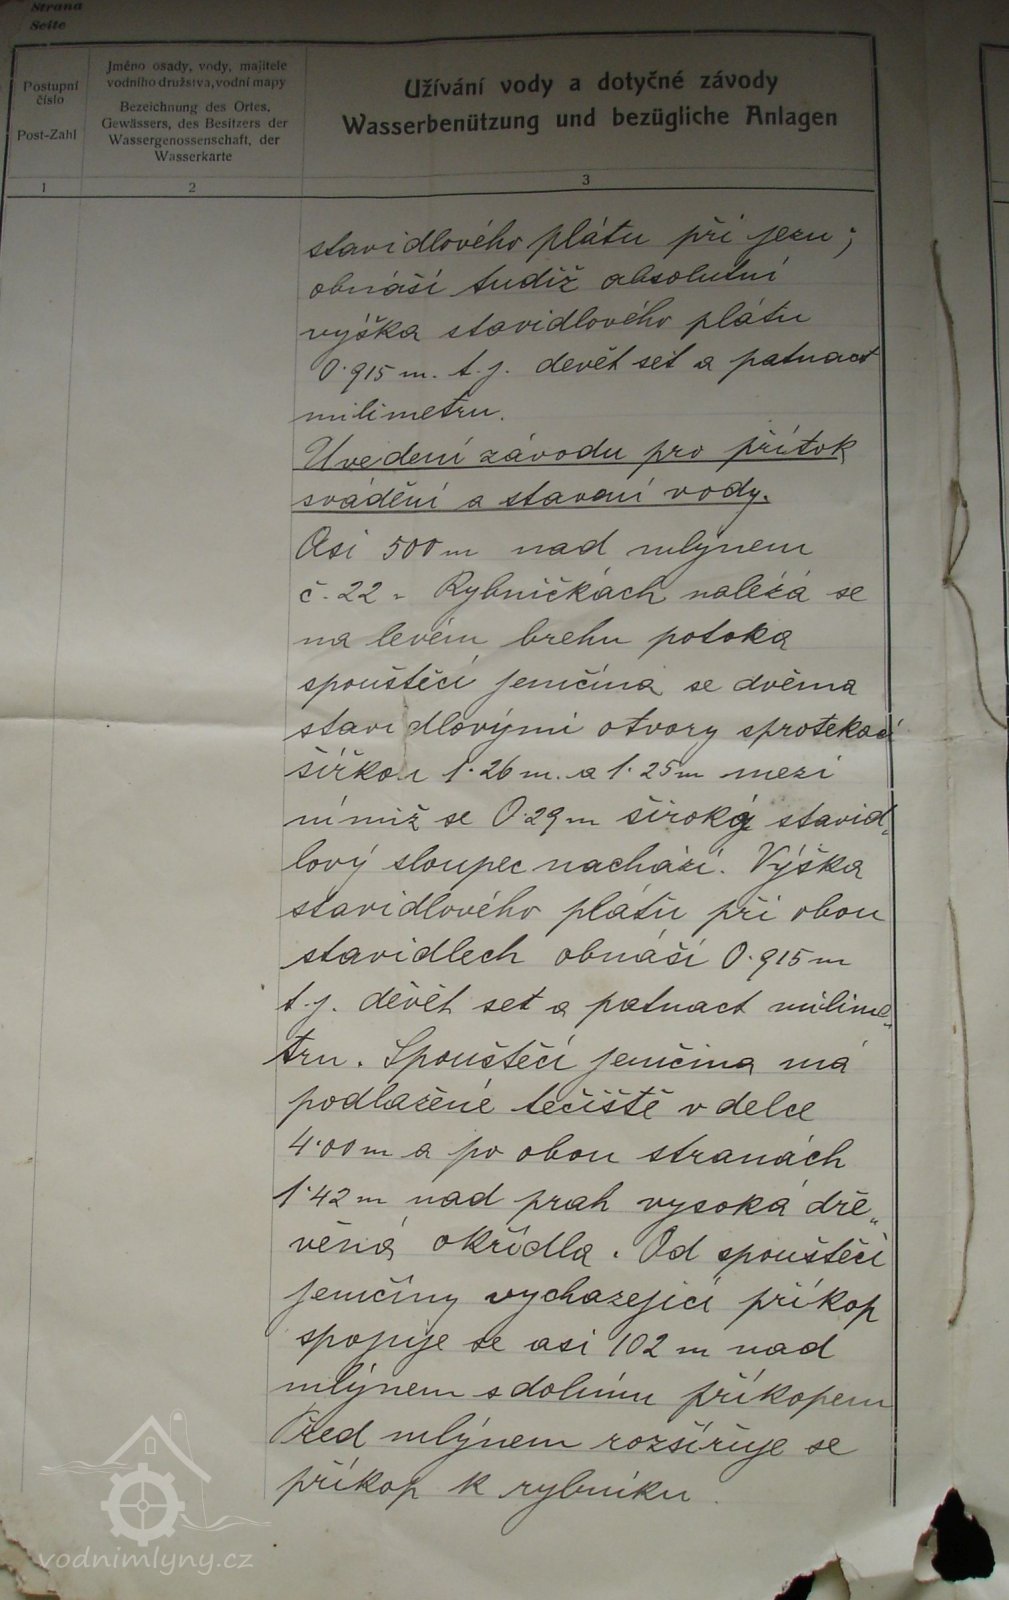 Strana
Seite
Postupní
číslo
Post-Zahl
Jméno osady, vody, majitele
vodního družstva, vodní mapy
Bezeichnung des Ortes,
Gewässers, des Besitzers der
Wassergenossenschaft, der
Wasserkarte
Užívání vody a dotyčné závody
Wasserbenützung und bezügliche Anlagen
1
2
3
stavidlového plátu při jezu;
obnáší tudíž absolutní
výška stavidlového plátu
0·915 m. t.j. devět set a patnact
milimetru.
Uvedení závodu pro přítok
svádění a stavaní vody.
Asi 500 m nad mlýnem
č. 22 - Rybničkách naléžá se
na levém brehu potoka
spouštěcí jemčina se dvěma
stavidlovými otvory sprotekací
šířkou 1·26 m. a 1·25 m mezi
nimiž se 0·29 m široký stavid„
lový sloupec nacházi. Výška
stavidlového plátu při obou
stavidlech obnáší 0·915 m
t.j. děvět set a patnact milime„
tru. Spouštěcí jemčina má
podlažené tečiště v delce
4·00 m a po obou stranách
1·42 m nad prah vysoká dře„
věná okřídla. Od spouštěcí
jemčiny vychazejicí příkop
spojuje se asi 102 m nad
mlýnem s dolnímu příkopem
Před mlýnem rozšiřuje se
příkop k rybníku.
vodnimlyny.cz